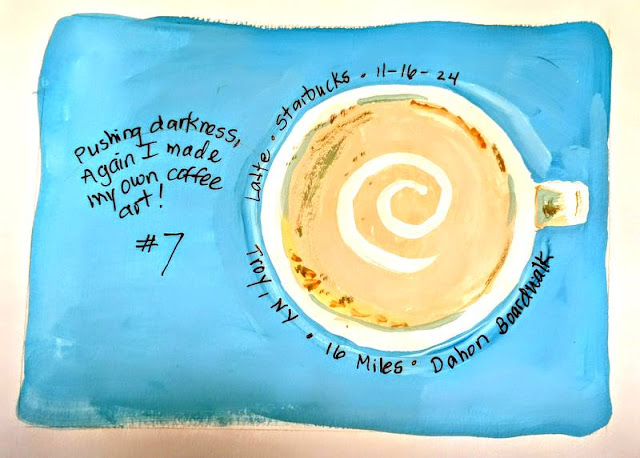 Pushing darkness,
Again I made
my own coffee
art!
#7
Latte • Starbucks • 11-16-24
Troy, NY • 16 Miles • Dahon Boardwalk